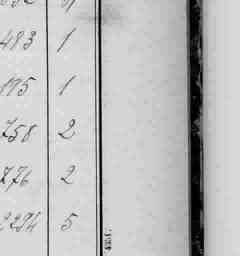 483 1
175 1
758 2
776 2
2294 5